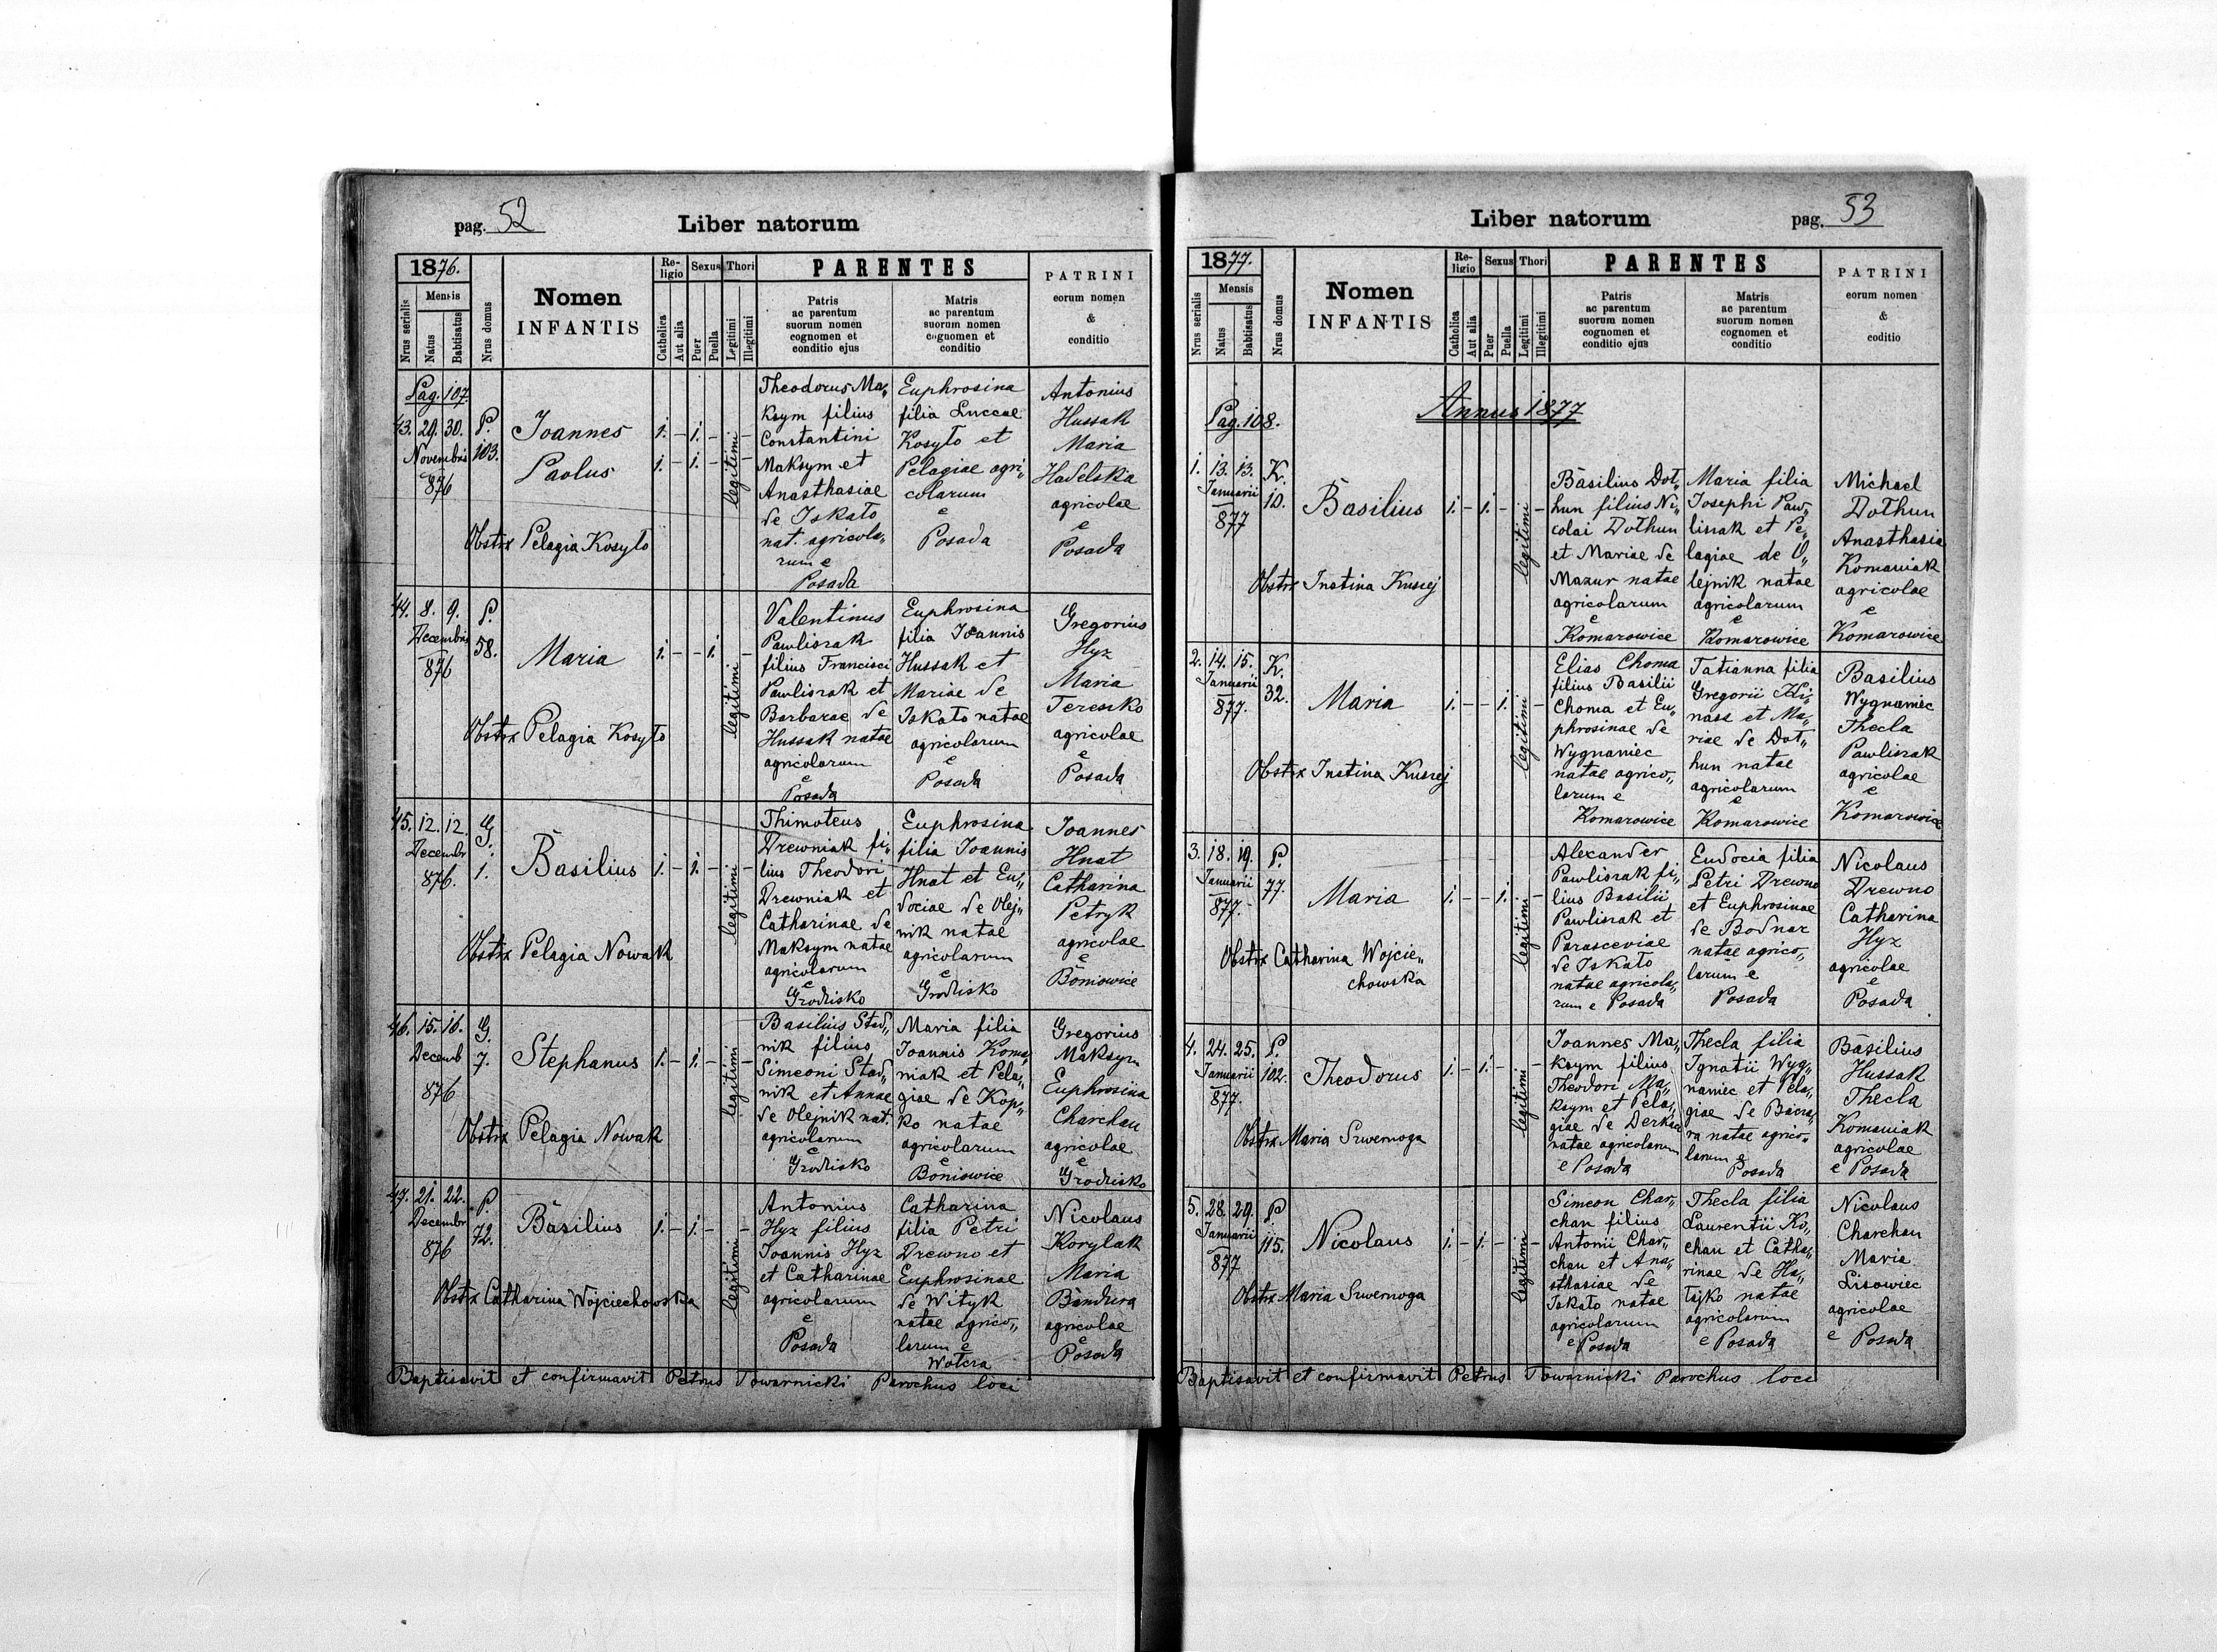 pag. 52
Liber natorum
1876.
Nrus serialis
Mensis
Natus
Babtisatus
Nrus domus
Nomen
INFANTIS
Re-
ligio
Catholica
Aut alia
Sexus
Puer
Puella
Thori
Legitimi
Illegitimi
PARENTES
Patris
ac parentum
suorum nomen
cognomen et
conditio ejus
Matris
ac parentum
suorum nomen
cognomen et
conditio
PATRINI
eorum nomen
&
conditio
Pag. 107.
43. 29. 30.
Novembris
876
P.
103.
Joannes
Paolus
1. - 1. -
1. - 1. -
legitimi
Obstrx Pelagia Kosyło
Theodorus Ma„
ksym filius
Constantini
Maksym et
Anasthasiae
de Iskało
nat. agricola„
rum e
Posada
Euphrosina
filia Luccae
Kosyło et
Pelagiae agri„
colarum
e
Posada
Antonius
Hussak
Maria
Hadelska
agricolae
e
Posada
44. 8. 9.
Decembris
876
P.
58.
Maria
1. - - 1. -
legitimi
Obstrx Pelagia Kosyło
Valentinus
Pawliszak
filius Francisci
Pawliszak et
Barbarae de
Hussak natae
agricolarum
e
Posada
Euphrosina
filia Joannis
Hussak et
Mariae de
Iskało natae
agricolarum
e
Posada
Gregorius
Hyz
Maria
Tereszko
agricolae
e
Posada
45. 12. 12.
Decembr
876.
G.
1.
Basilius
1. - 1. - -
legitimi
Obstrx Pelagia Nowak
Thimoteus
Drewniak fi„
lius Theodori
Drewniak et
Catharinae de
Maksym natae
agricolarum
e
Grodzisko
Euphrosina
filia Joannis
Hnat et Eu„
dociae de Olej„
nik natae
agricolarum
e
Grodzisko
Joannes
Hnat
Catharina
Petryk
agricolae
e
Boniowice
46. 15. 16.
Decemb
876
G.
7.
Stephanus
1. - 1. - -
legitimi
Obstrx Pelagia Nowak
Basilius Stad„
nik filius
Simeoni Stad„
nik et Annae
de Olejnik nat.
agricolarum
e
Grodzisko
Maria filia
Joannis Koma„
niak et Pela„
giae de Kop„
ko natae
agricolarum
e
Boniowice
Gregorius
Maksym
Euphrosina
Charchan
agricolae
e
Grodzisko
47. 21. 22.
Decembr
876
P.
72.
Basilius
1. - 1. - -
legitimi
Obstrx Catharina Wojciechowska
Antonius
Hyz filius
Joannis Hyz
et Catharinae
agricolarum
e
Posada
Catharina
filia Petri
Drewno et
Euphrosinae
de Wityk
natae agrico„
larum e
Wolcza
Nicolaus
Korylak
Maria
Bandura
agricolae
e
Posada
Baptisavit et confirmavit Petrus Towarnicki Parochus loci
Liber natorum
pag. 53
1877.
Nrus serialis
Mensis
Natus
Babtisatus
Nrus domus
Nomen
INFANTIS
Re-
ligio
Catholica
Aut alia
Sexus
Puer
Puella
Thori
Legitimi
Illegitimi
PARENTES
Patris
ac parentum
suorum nomen
cognomen et
conditio ejus
Matris
ac parentum
suorum nomen
cognomen et
conditio
PATRINI
eorum nomen
&
coditio
Pag. 108.
Annus 1877
1. 13. 13.
Januarii
877
K.
10.
Basilius
1. - 1. - -
legitimi
Obstrx Instina Kuszej
Basilius Dot„
hun filius Ni„
colai Dothun
et Mariae de
Mazur natae
agricolarum
e
Komarowice
Maria filia
Josephi Paw„
liszak et Pe„
lagiae de O„
lejnik natae
agricolarum
e
Komarowice
Michael
Dothun
Anasthasia
Komaniak
agricolae
e
Komarowice
2. 14. 15.
Januarii
877.
K.
32.
Maria
1. - - 1. -
legitimi
Obstrx Instina Kuszej
Elias Choma
filius Basilii
Choma et Eu„
phrosinae de
Wygnaniec
natae agrico„
larum e
Komarowice
Tatianna filia
Gregorii Ki„
nasz et Ma„
riae de Dot„
hun natae
agricolarum
e
Komarowice
Basilius
Wygnaniec
Thecla
Pawliszak
agricolae
e
Komarowice
3. 18. 19.
Januarii
877.
P.
77.
Maria
1. - - 1. -
legitimi
Obstrx Catharina Wojcie„
chowska
Alexander
Pawliszak fi„
lius Basilii
Pawliszak et
Parasceviae
de Iskało
natae agricola„
rum e Posada
Eudocia filia
Petri Drewno
et Euphrosinae
de Bodnar
natae agrico„
larum e
Posada
Nicolaus
Drewno
Catharina
Hyz
agricolae
e
Posada
4. 24. 25.
Januarii
877
P.
102.
Theodorus
1. - 1. - -
legitimi
Obstrx Maria Szwernoga
Joannes Ma„
ksym filius
Theodori Ma„
ksym et Pela„
giae de Derkacz
natae agricolarum
e Posada
Thecla filia
Ignatii Wyg„
naniec et Pela„
giae de Bacza„
ra natae agrico„
larum e
Posada
Basilius
Hussak
Thecla
Komaniak
agricolae
e Posada
5. 28. 29.
Januarii
877
P
115.
Nicolaus
1. - 1. - -
legitimi
Obstrx Maria Szwernoga
Simeon Char„
chan filius
Antonii Char„
chan et Ana„
sthasiae de
Iskało natae
agricolarum
e Posada
Thecla filia
Laurentii Ko„
chan et Catha„
rinae de Ha„
tajko natae
agricolarum
e Posada
Nicolaus
Charchan
Maria
Lisowiec
agricolae
e Posada
Baptisavit et confirmavit Petrus Towarnicki Parochus loci